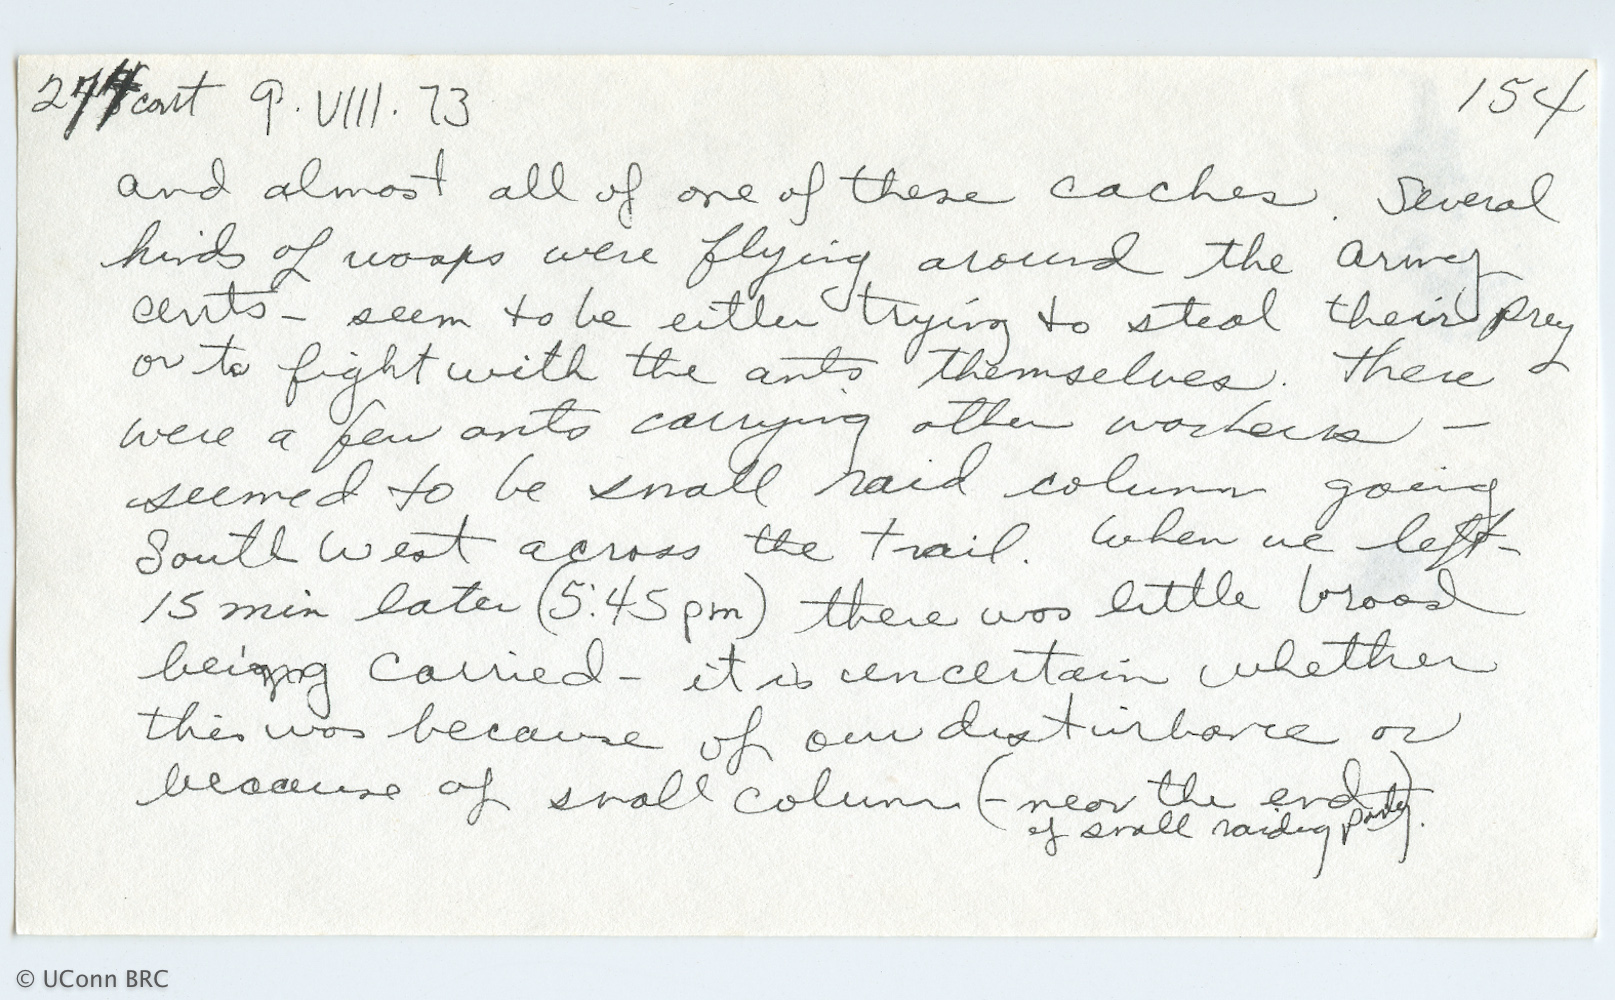 274 cont 9.VIII.73 154
and almost all of one of these caches. Several
kinds of wasps were flying around the army
ants - seem to be either trying to steal their prey
or to fight with the ants themselves. There
were a few ants carrying other workers -
seemed to be small raid column going
South West across the trail. When we left -
15 min later (5:45 pm) there was little brood
being carried - it is uncertain whether
this was because of our disturbance or
because of small column (- near the end)
of small raiding party).
© UConn BRC